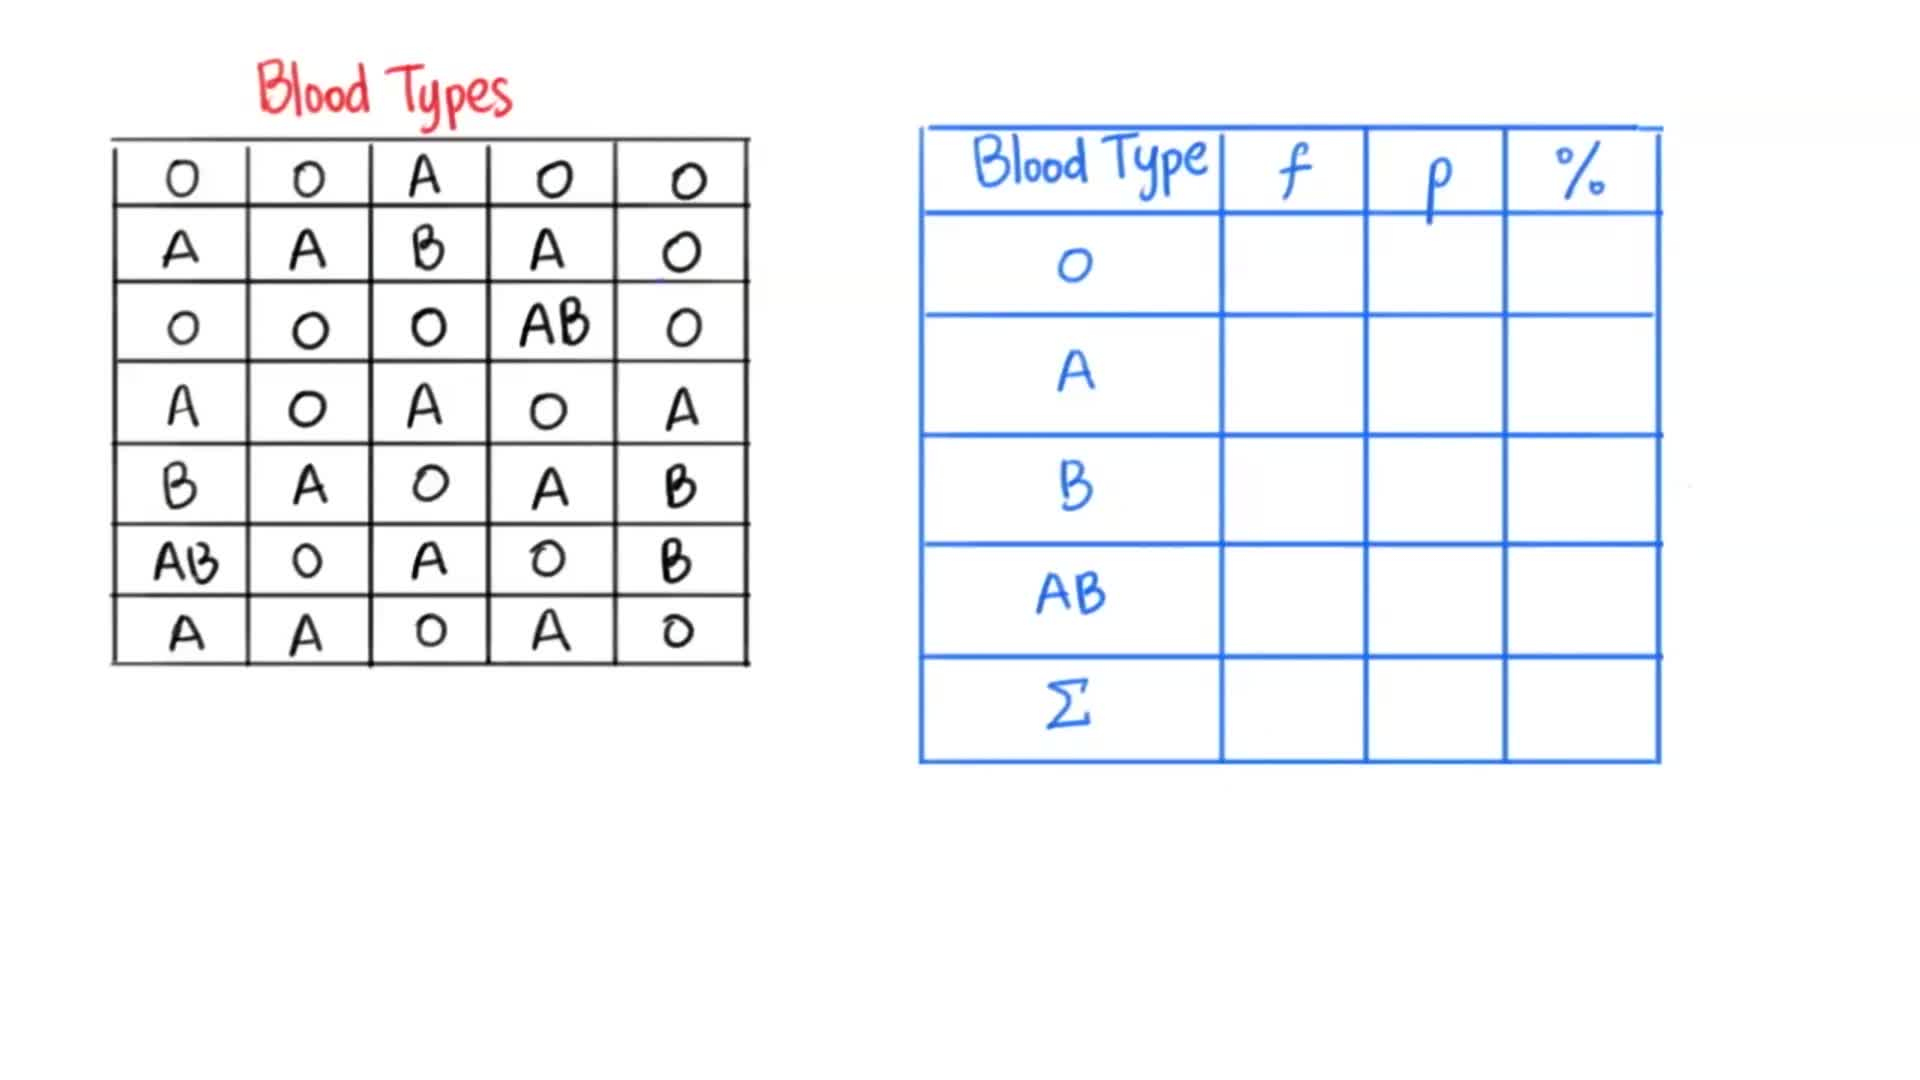 Blood Types
O O A O O
A A B A O
O O O AB O
A O A O A
B A O A B
AB O A O B
A A O A O
Blood Type f p %
O
A
B
AB
Σ